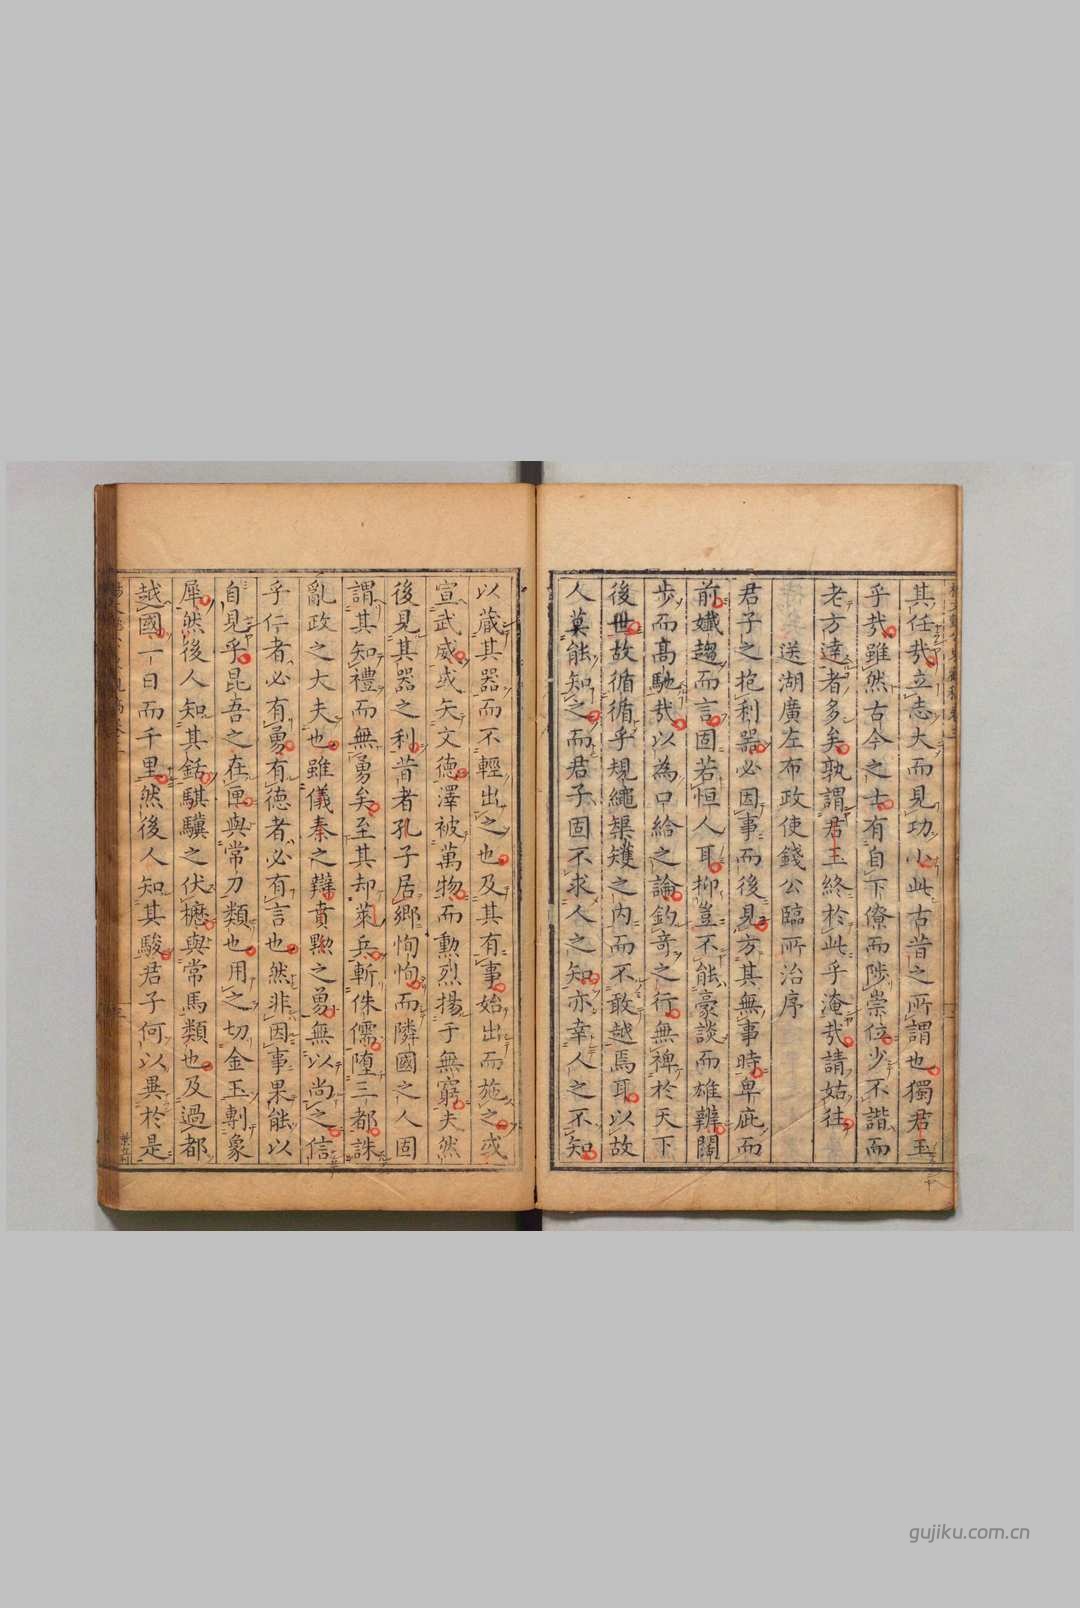 其任哉立志大而見功小此古昔之所謂也獨君玉
乎哉雖然古今之士有自下僚而陟崇位少不諧而
老方達者多矣孰謂君玉終於此乎淹哉請姑往
送湖廣左布政使錢公臨所治序
君子之抱利器必因事而後見方其無事時卑庇而
前孅趨而言固若恒人耳抑豈不能豪談而雄辨闊
步而高馳哉以為口給之論釣竒之行無裨於天下
後世故循循乎規繩榘矱之内而不敢越焉耳以故
人莫能知之而君子固不求人之知亦幸人之不知
以蕆其器而不輕出之也及其有事始出而施之或
宣武威或矢文德澤被萬物而勳烈揚于無窮夫然
後見其器之利昔者孔子居鄉恂恂而隣國之人固
謂其知禮而無勇矣至其却萊兵斬侏儒墮三都誅
亂政之大夫也雖儀秦之辯賁黝之勇無以尚之信
乎仁者必有勇有德者必有言也然非因事果能以
自見乎昆吾之在匣與常刀類也用之切金玉剸象
犀然後人知其銛騏驥之伏櫪與常馬類也及過都
越國一日而千里然後人知其駿君子何以異於是
gujiku.com.cn